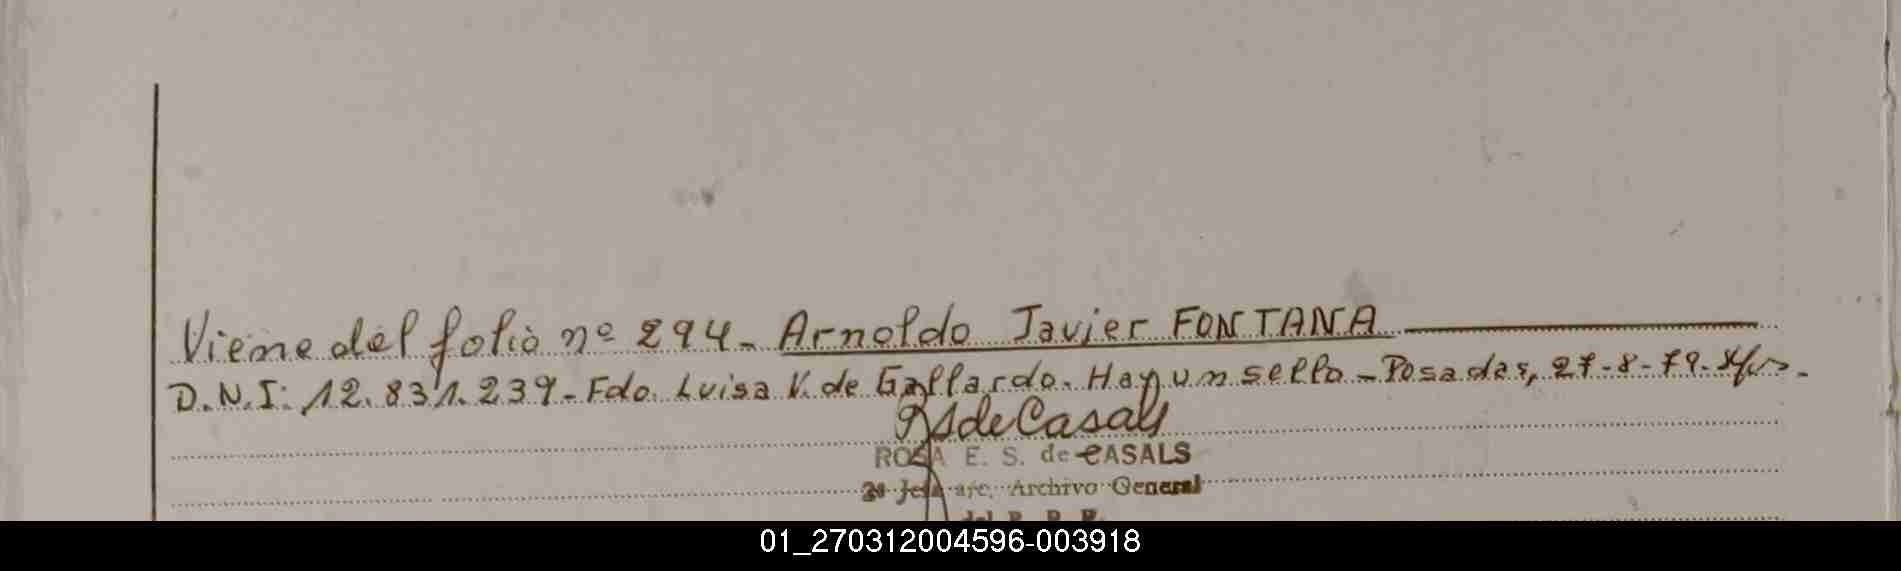 Viene del folio nº 294. Arnoldo Javier FONTANA
D.N.I: 12.831.239. Fdo. Luisa V. de Gallardo. Hay un sello. Posadas, 27-8-79.
RSdeCasals
ROSA E. S. de CASALS
Archivo General
del R. P. P.
01_270312004596-003918